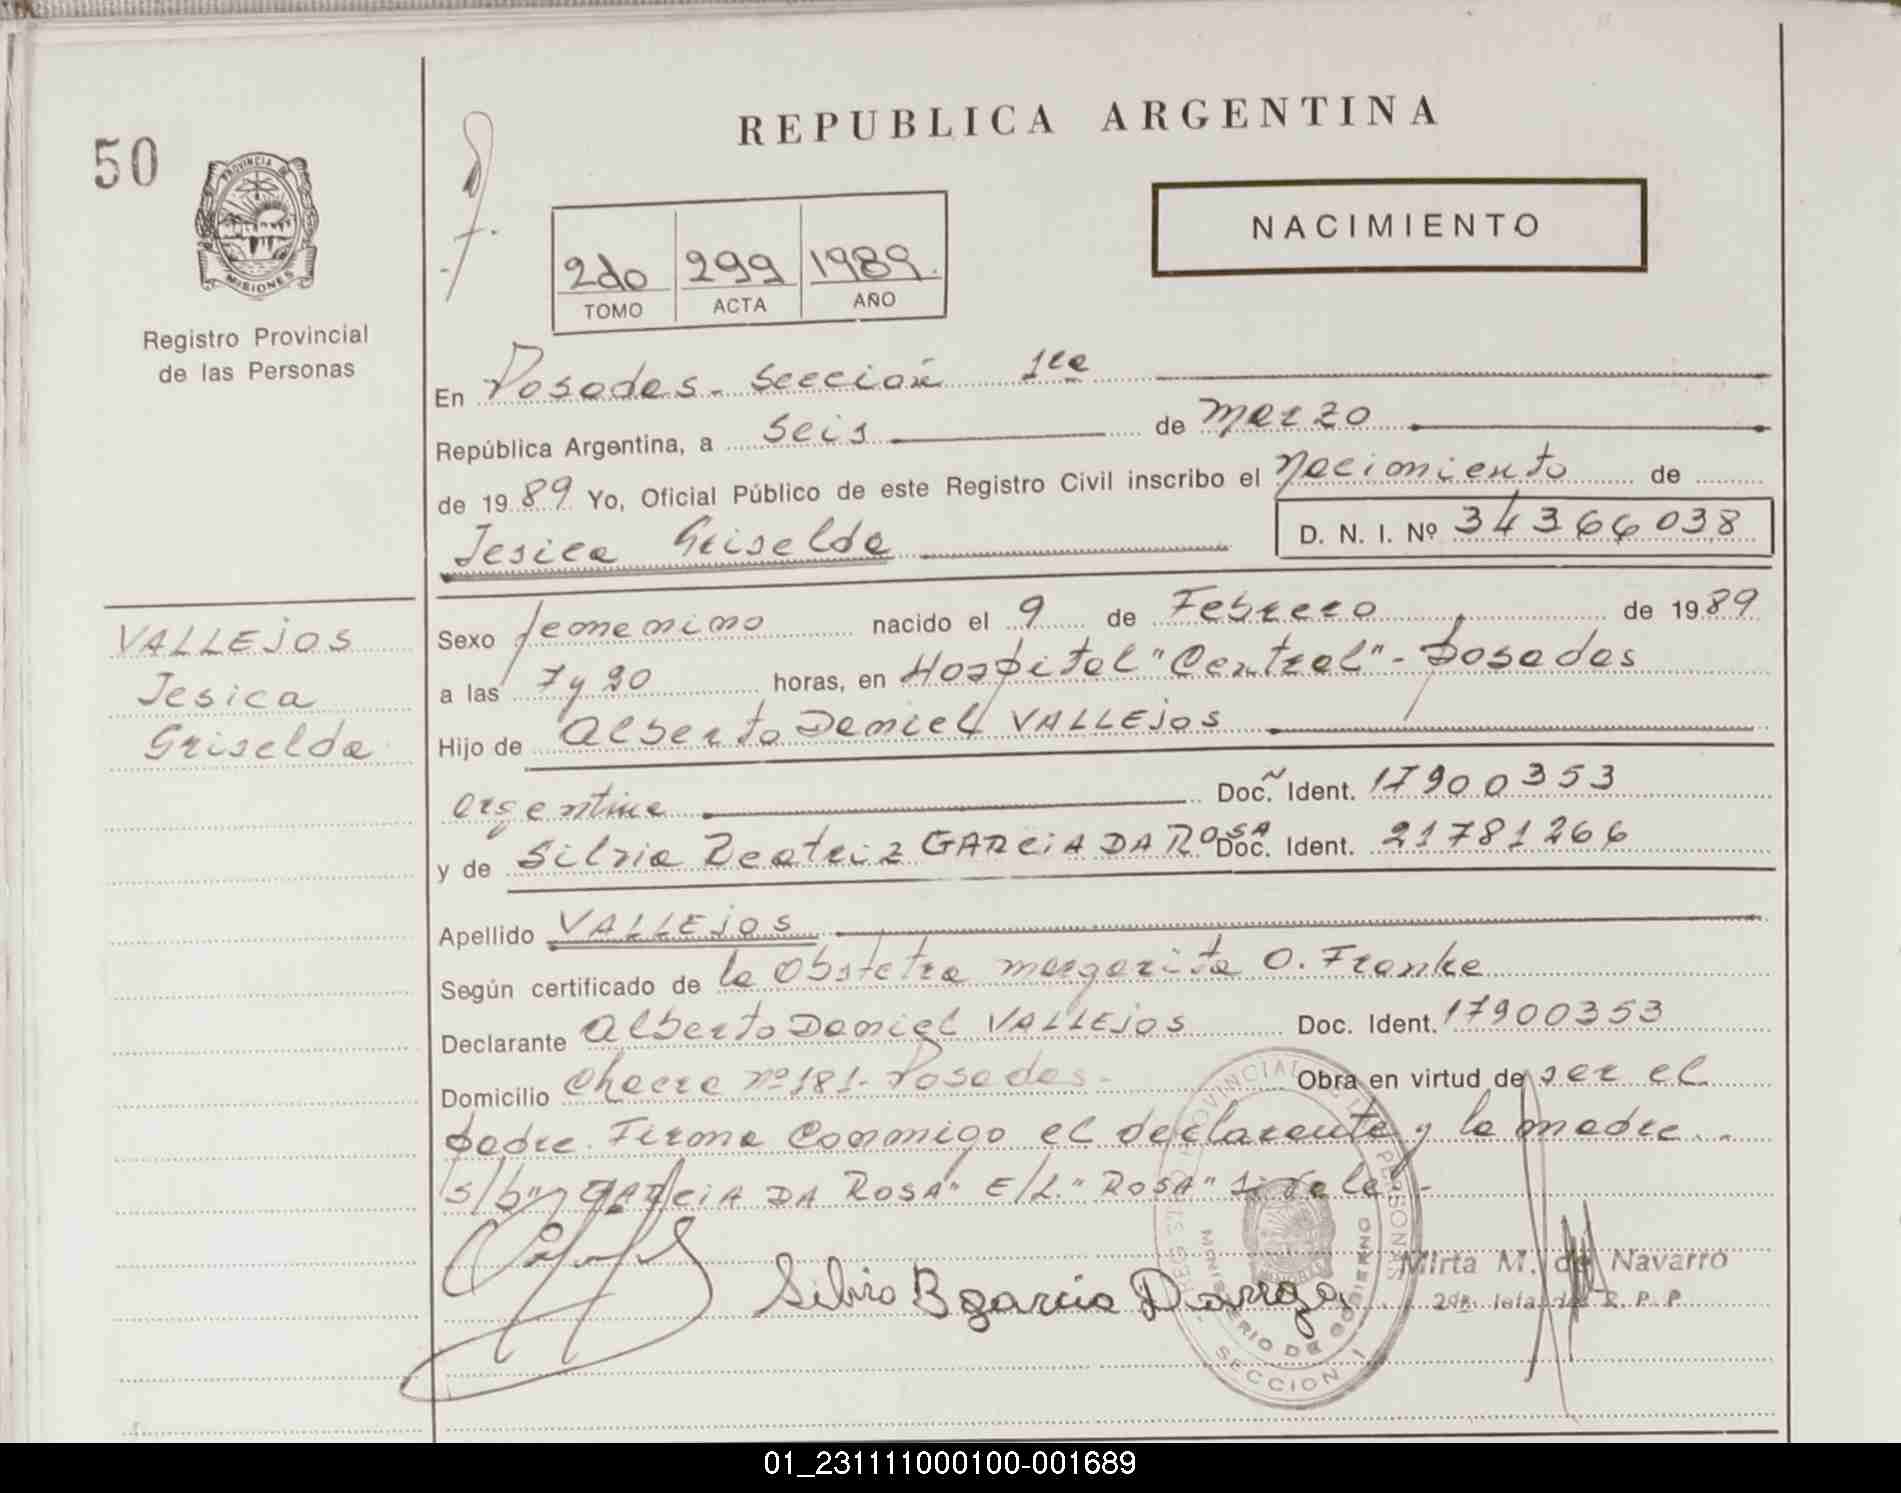 50
PROVINCIA DE
MISIONES
Registro Provincial
de las Personas
REPUBLICA ARGENTINA
NACIMIENTO
2do 299 1989
TOMO ACTA AÑO
En Posadas - Sección 1ra
República Argentina, a seis de Marzo
de 1989 Yo, Oficial Público de este Registro Civil inscribo el Nacimiento de
Jesica Griselda D. N. I. Nº 34366038
VALLEJOS
Jesica
Griselda
Sexo femenino nacido el 9 de Febrero de 1989
a las 7 y 20 horas, en Hospital "Central" - Posadas
Hijo de Alberto Daniel VALLEJOS
argentina Doc. Ident. 17900353
y de Silvia Beatriz GARCIA DA ROSA Doc. Ident. 21781266
Apellido VALLEJOS
Según certificado de la Obstetra Margarita O. Franke
Declarante Alberto Daniel VALLEJOS Doc. Ident. 17900353
Domicilio Chacra nº 181 - Posadas - Obra en virtud de ser el
padre. Firma Conmigo el declarante y la madre.
S/b "GARCIA DA ROSA" E/L. "ROSA"
Silvia B garcia Darroza
Mirta M. de Navarro
2da. Jefa del R. P. P.
REGISTRO PROVINCIAL DE LAS PERSONAS
MINISTERIO DE GOBIERNO
SECCION 1
01_231111000100-001689